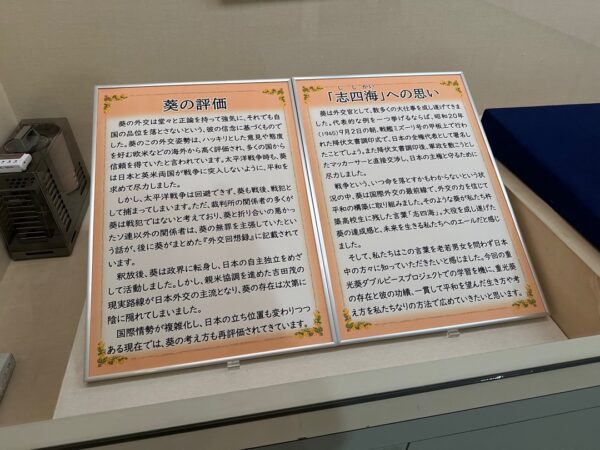 葵の評価
葵の外交は堂々と正論を持って強気に、それでも自
国の品位を落とさないという、彼の信念に基づくもので
した。葵のこの外交姿勢は、ハッキリとした意見や態度
を好む欧米などの海外から高く評価され、多くの国から
信頼を得ていたと言われています。太平洋戦争時も、葵
は日本と英米両国が戦争に突入しないように、平和を
求めて尽力しました。
しかし、太平洋戦争は回避できず、葵も戦後、戦犯と
して捕まってしまいます。ただ、裁判所の関係者の多くが
葵は戦犯ではないと考えており、葵と折り合いの悪かっ
たソ連以外の関係者は、葵の無罪を主張していたとい
う話が、後に葵がまとめた『外交回想録』に記載されて
います。
釈放後、葵は政界に転身し、日本の自主独立をめざ
して活動しました。しかし、親米協調を進めた吉田茂の
現実路線が日本外交の主流となり、葵の存在は次第に
陰に隠れてしまいました。
国際情勢が複雑化し、日本の立ち位置も変わりつつ
ある現在では、葵の考え方も再評価されてきています。
ししかい
「志四海」への思い
葵は外交官として、数多くの大仕事を成し遂げてきま
した。代表的な例を一つ挙げるならば、昭和20年
(1945)9月2日の朝、戦艦ミズーリ号の甲板上で行わ
れた降伏文書調印式で、日本の全権代表として署名し
たことでしょう。また降伏文書調印後、軍政を敷こうとし
たマッカーサーと直接交渉し、日本の主権を守るために
尽力しました。
戦争という、いつ命を落とすかもわからないという状
況の中、葵は国際外交の最前線で、外交の力を信じて
平和の構築に取り組みました。そのような葵が私たち杵
築高校生に残した言葉「志四海」。大役を成し遂げた
葵の達成感と、未来を生きる私たちへのエールだと感じ
ました。
そして、私たちはこの言葉を老若男女を問わず日本
中の方々に知っていただきたいと感じました。今回の重
光葵ダブルピースプロジェクトでの学習を機に、重光葵
の存在と彼の功績、一貫して平和を望んだ生き方や考
え方を私たちなりの方法で広めていきたいと思います。